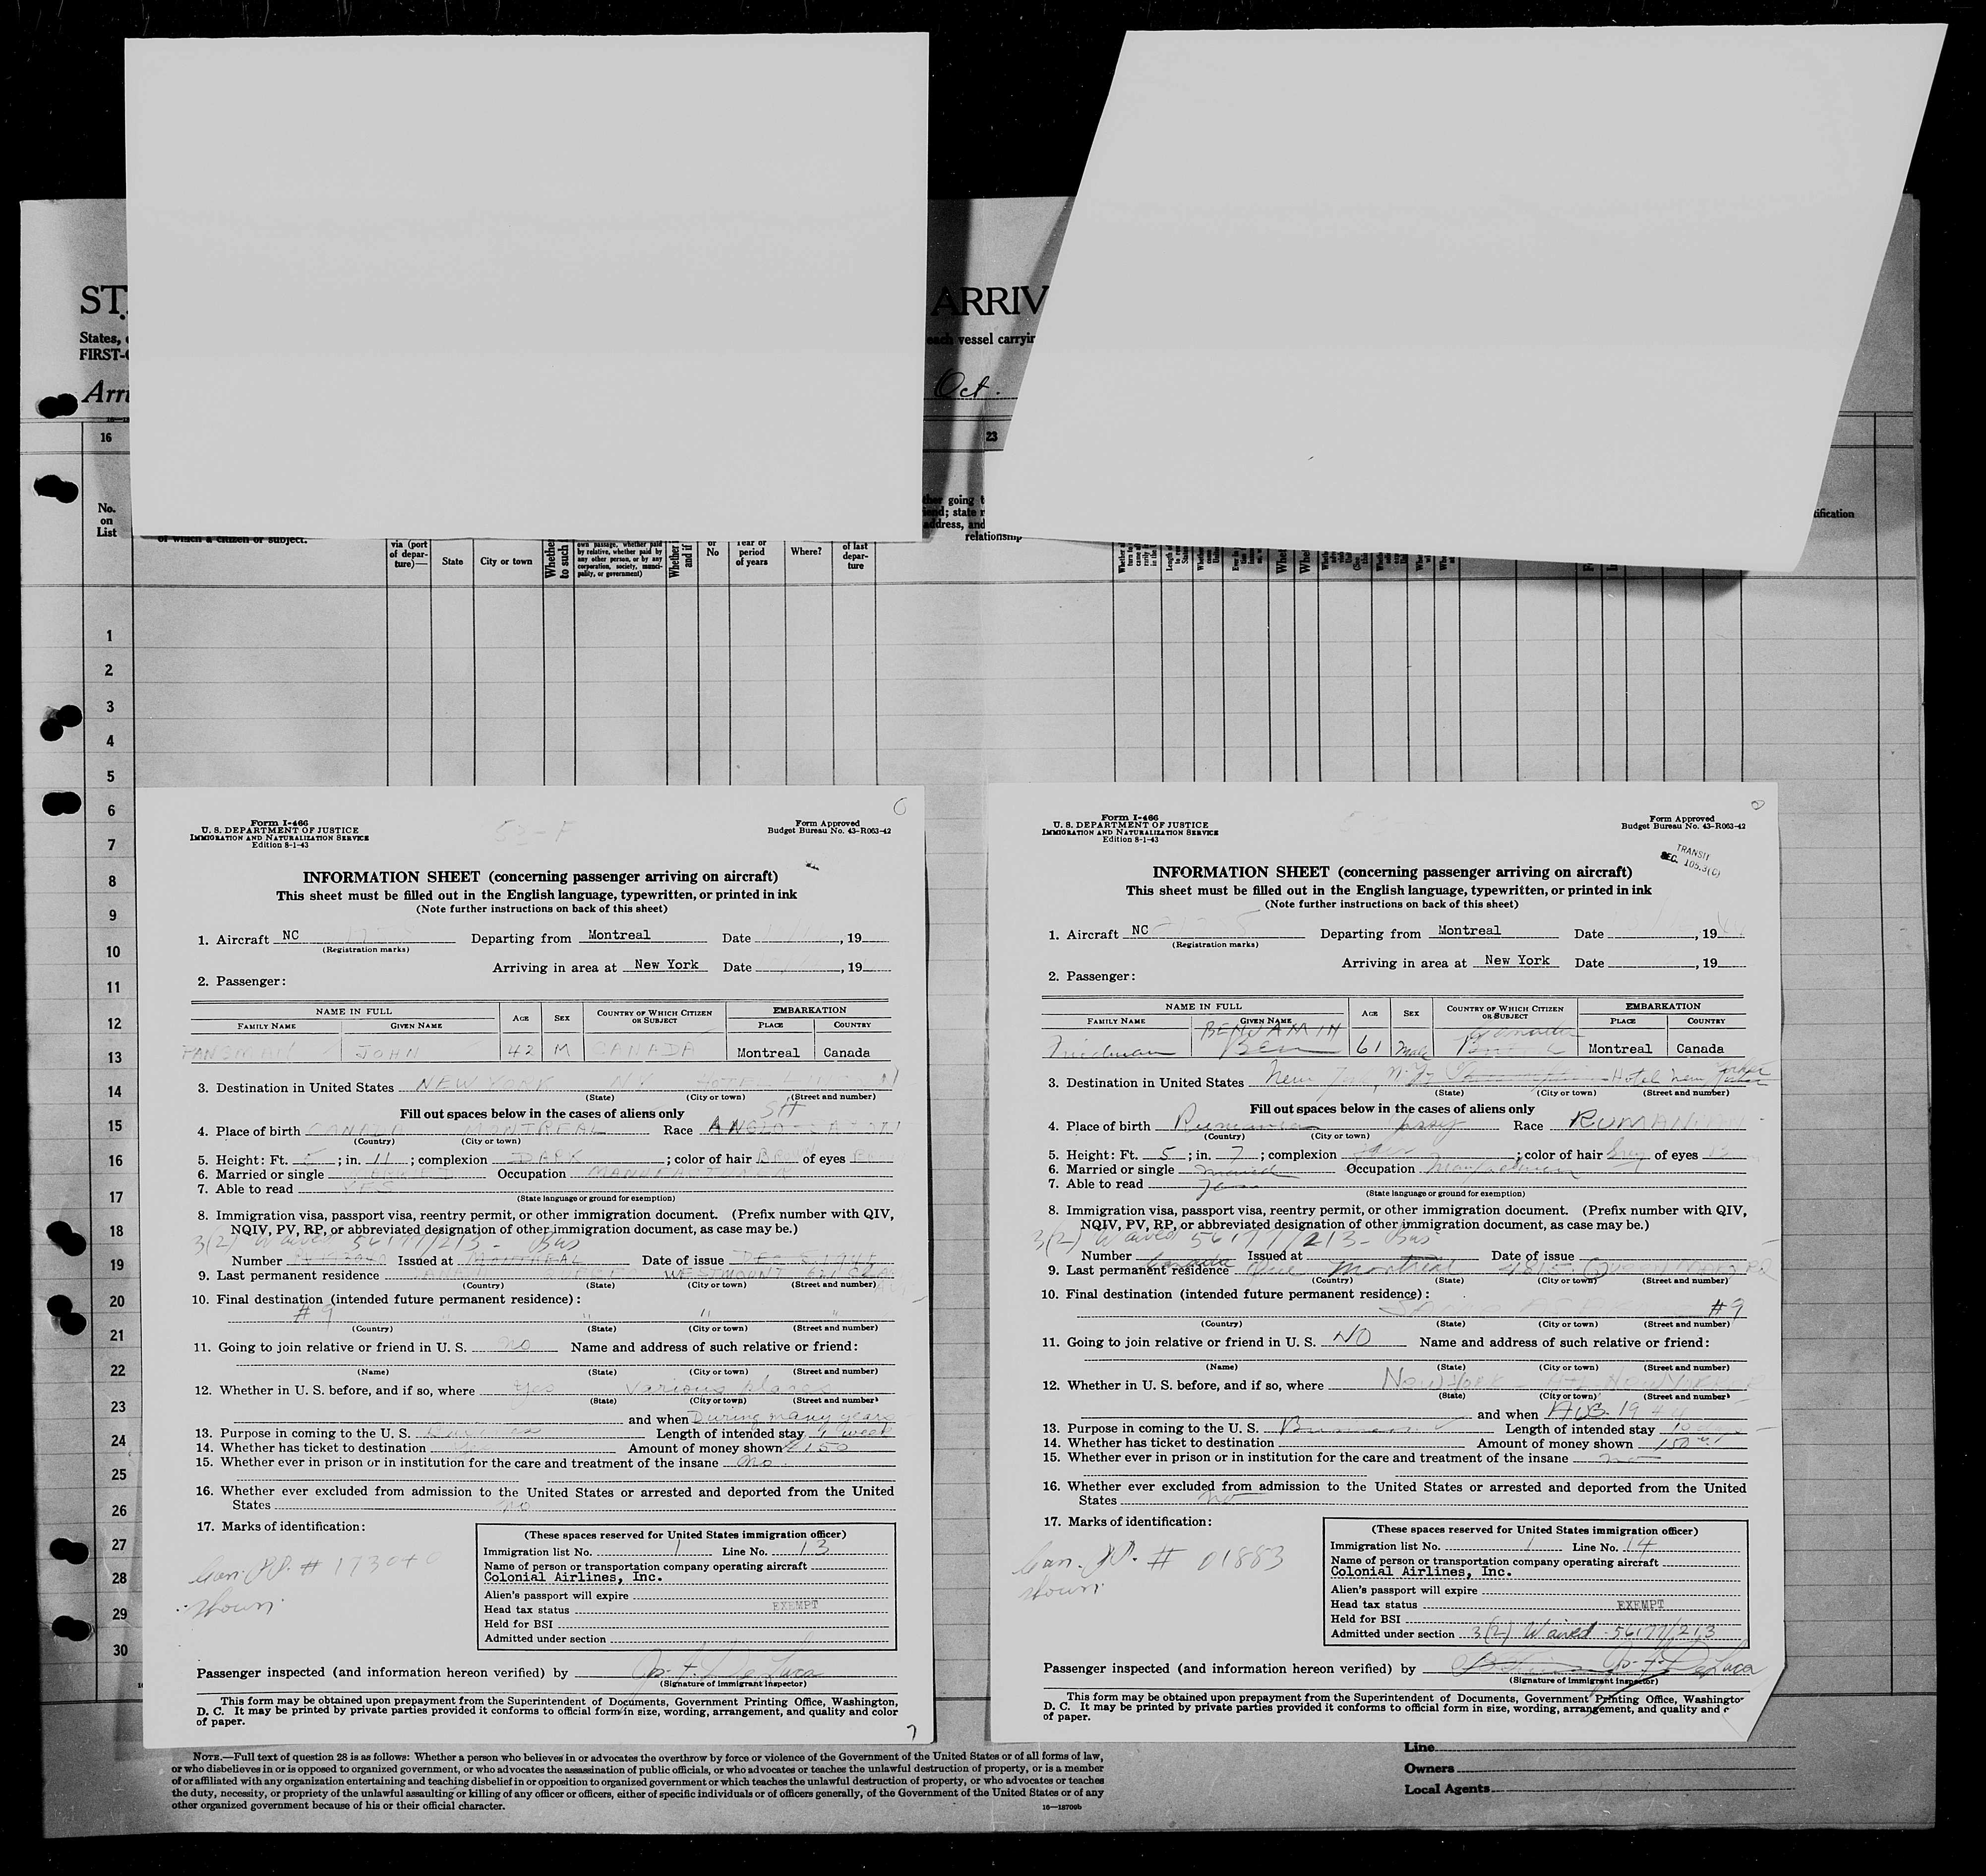 ST
ARRIV
States,
each vessel carryin
FIRST-C
Arri
Oct.
16
23
No.
on
List
ther going t
iend; state r
address, and
relationship
tification
of which a citizen or subject.
via (port
of depar-
ture)—
State
City or town
Whether
to such
own passage, whether paid
by relative, whether paid by
any other person, or by any
corporation, society, munici-
pality, or government)
Whether i
and if
or
No
Year or
period
of years
Where?
of last
depar-
ture
1
2
3
4
5
6
7
8
9
10
11
12
13
14
15
16
17
18
19
20
21
22
23
24
25
26
27
28
29
30
Form I-466
U. S. DEPARTMENT OF JUSTICE
IMMIGRATION AND NATURALIZATION SERVICE
Edition 8-1-43
53-F
Form Approved
Budget Bureau No. 43-R063-42
INFORMATION SHEET (concerning passenger arriving on aircraft)
This sheet must be filled out in the English language, typewritten, or printed in ink
(Note further instructions on back of this sheet)
1. Aircraft NC Departing from Montreal Date , 19
(Registration marks)
Arriving in area at New York Date , 19
2. Passenger:
NAME IN FULL AGE SEX COUNTRY OF WHICH CITIZEN OR SUBJECT EMBARKATION
FAMILY NAME GIVEN NAME PLACE COUNTRY
JOHN 42 M CANADA Montreal Canada
3. Destination in United States NEW YORK NY HOTEL
(State) (City or town) (Street and number)
Fill out spaces below in the cases of aliens only
4. Place of birth CANADA MONTREAL Race ANGLO
(Country) (City or town)
5. Height: Ft. 5 ; in. 11 ; complexion DARK ; color of hair BROWN of eyes
6. Married or single Occupation MANUFACTURER
7. Able to read YES
(State language or ground for exemption)
8. Immigration visa, passport visa, reentry permit, or other immigration document. (Prefix number with QIV,
NQIV, PV, RP, or abbreviated designation of other immigration document, as case may be.)
3(2) Waived 56177/213 - Bus
Number Issued at MONTREAL Date of issue DEC 5 1944
9. Last permanent residence WESTMOUNT
(Country) (State) (City or town) (Street and number)
10. Final destination (intended future permanent residence):
#9 " " "
(Country) (State) (City or town) (Street and number)
11. Going to join relative or friend in U. S. no Name and address of such relative or friend:
(Name) (State) (City or town) (Street and number)
12. Whether in U. S. before, and if so, where Yes various places
(State) (City or town) (Street and number)
and when During many years
13. Purpose in coming to the U. S. Business Length of intended stay 1 week
14. Whether has ticket to destination Yes Amount of money shown 150
15. Whether ever in prison or in institution for the care and treatment of the insane no
16. Whether ever excluded from admission to the United States or arrested and deported from the United
States no
17. Marks of identification:
Can. PP. # 173040
shown
(These spaces reserved for United States immigration officer)
Immigration list No. 1 Line No. 13
Name of person or transportation company operating aircraft
Colonial Airlines, Inc.
Alien's passport will expire
Head tax status EXEMPT
Held for BSI
Admitted under section
Passenger inspected (and information hereon verified) by Jo. F. De Luca
(Signature of immigrant inspector)
This form may be obtained upon prepayment from the Superintendent of Documents, Government Printing Office, Washington,
D. C. It may be printed by private parties provided it conforms to official form in size, wording, arrangement, and quality and color
of paper.
7
Form I-466
U. S. DEPARTMENT OF JUSTICE
IMMIGRATION AND NATURALIZATION SERVICE
Edition 8-1-43
Form Approved
Budget Bureau No. 43-R063-42
TRANSIT
SEC. 105.3(C)
INFORMATION SHEET (concerning passenger arriving on aircraft)
This sheet must be filled out in the English language, typewritten, or printed in ink
(Note further instructions on back of this sheet)
1. Aircraft NC Departing from Montreal Date , 19
(Registration marks)
Arriving in area at New York Date , 19
2. Passenger:
NAME IN FULL AGE SEX COUNTRY OF WHICH CITIZEN OR SUBJECT EMBARKATION
FAMILY NAME GIVEN NAME PLACE COUNTRY
BENJAMIN Canada
Friedman Ben 61 Male Montreal Canada
3. Destination in United States New York, N.Y. Hotel New Yorker
(State) (City or town) (Street and number)
Fill out spaces below in the cases of aliens only
4. Place of birth Rumania Jassy Race RUMANIAN
(Country) (City or town)
5. Height: Ft. 5 ; in. 7 ; complexion ; color of hair Grey of eyes
6. Married or single Married Occupation Manufacturer
7. Able to read
(State language or ground for exemption)
8. Immigration visa, passport visa, reentry permit, or other immigration document. (Prefix number with QIV,
NQIV, PV, RP, or abbreviated designation of other immigration document, as case may be.)
3(2) Waived 56177/213 - Bus
Number Issued at Date of issue
9. Last permanent residence Canada Que Montreal 4815 Queen Mary Rd
(Country) (State) (City or town) (Street and number)
10. Final destination (intended future permanent residence):
SAME AS #9
(Country) (State) (City or town) (Street and number)
11. Going to join relative or friend in U. S. NO Name and address of such relative or friend:
(Name) (State) (City or town) (Street and number)
12. Whether in U. S. before, and if so, where New York - Htl New Yorker
(State) (City or town) (Street and number)
and when AUG. 1944
13. Purpose in coming to the U. S. Business Length of intended stay 10
14. Whether has ticket to destination Amount of money shown 150
15. Whether ever in prison or in institution for the care and treatment of the insane no
16. Whether ever excluded from admission to the United States or arrested and deported from the United
States no
17. Marks of identification:
Can. PP. # 01883
shown
(These spaces reserved for United States immigration officer)
Immigration list No. 1 Line No. 14
Name of person or transportation company operating aircraft
Colonial Airlines, Inc.
Alien's passport will expire
Head tax status EXEMPT
Held for BSI
Admitted under section 3(2) Waived 56177/213
Passenger inspected (and information hereon verified) by Jo. F. De Luca
(Signature of immigrant inspector)
This form may be obtained upon prepayment from the Superintendent of Documents, Government Printing Office, Washingto
D. C. It may be printed by private parties provided it conforms to official form in size, wording, arrangement, and quality and c
of paper.
NOTE.—Full text of question 28 is as follows: Whether a person who believes in or advocates the overthrow by force or violence of the Government of the United States or of all forms of law,
or who disbelieves in or is opposed to organized government, or who advocates the assassination of public officials, or who advocates or teaches the unlawful destruction of property, or is a member
of or affiliated with any organization entertaining and teaching disbelief in or opposition to organized government or which teaches the unlawful destruction of property, or who advocates or teaches
the duty, necessity, or propriety of the unlawful assaulting or killing of any officer or officers, either of specific individuals or of officers generally, of the Government of the United States or of any
other organized government because of his or their official character.
16—18709b
Line
Owners
Local Agents